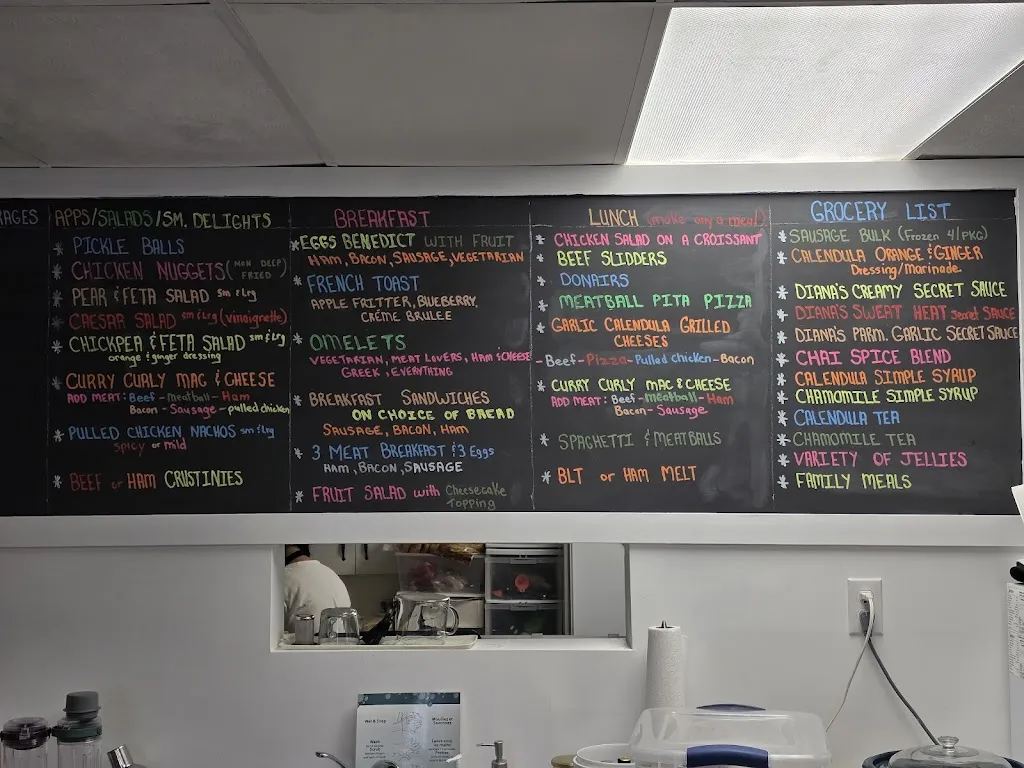 RAGES
APPS/SALADS/SM. DELIGHTS
* PICKLE BALLS
* CHICKEN NUGGETS (NON DEEP FRIED)
* PEAR & FETA SALAD sm & Lrg
* CAESAR SALAD sm & Lrg (vinaigrette)
* CHICKPEA & FETA SALAD sm & Lrg
orange & ginger dressing
* CURRY CURLY MAC & CHEESE
ADD MEAT: Beef - Meatball - Ham
Bacon - Sausage - pulled chicken
* PULLED CHICKEN NACHOS sm & Lrg
spicy or mild
* BEEF or HAM CRUSTINIES
BREAKFAST
* EGGS BENEDICT WITH FRUIT
HAM, BACON, SAUSAGE, VEGETARIAN
* FRENCH TOAST
APPLE FRITTER, BLUEBERRY,
CRÉME BRULEE
* OMELETS
VEGETARIAN, MEAT LOVERS, HAM & CHEESE
GREEK, EVERYTHING
* BREAKFAST SANDWICHES
ON CHOICE OF BREAD
SAUSAGE, BACON, HAM
* 3 MEAT BREAKFAST & 3 Eggs
HAM, BACON, SAUSAGE
* FRUIT SALAD with Cheesecake
Topping
LUNCH (make any a meal)
* CHICKEN SALAD ON A CROISSANT
* BEEF SLIDDERS
* DONAIRS
* MEATBALL PITA PIZZA
* GARLIC CALENDULA GRILLED
CHEESES
- Beef - Pizza - Pulled chicken - Bacon
* CURRY CURLY MAC & CHEESE
ADD MEAT: Beef - meatball - Ham
Bacon - Sausage
* SPAGHETTI & MEATBALLS
* BLT or HAM MELT
GROCERY LIST
* SAUSAGE BULK (Frozen 4/PKG)
* CALENDULA ORANGE & GINGER
Dressing/Marinade
* DIANA'S CREAMY SECRET SAUCE
* DIANA'S SWEAT HEAT Secret SAUCE
* DIANA'S PARM. GARLIC SECRET SAUCE
* CHAI SPICE BLEND
* CALENDULA SIMPLE SYRUP
* CHAMOMILE SIMPLE SYRUP
* CALENDULA TEA
* CHAMOMILE TEA
* VARIETY OF JELLIES
* FAMILY MEALS
Wet & Soap
Wash